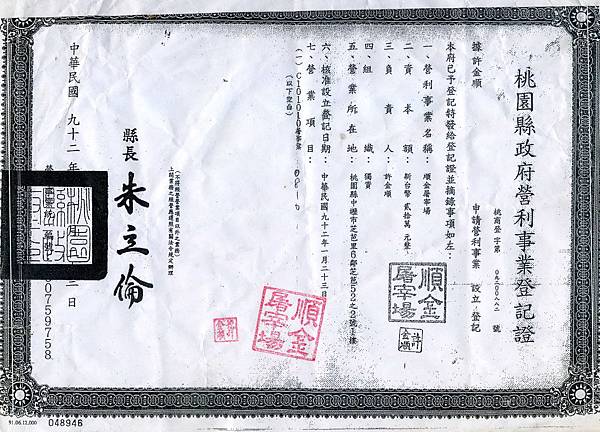 桃園縣政府營利事業登記證
桃商登字第
號
據許金順
申請營利事業 設立 登記
本府已予登記特發給登記證並摘錄事項如左：
一、營利事業名稱：順金屠宰場
二、資本額：新台幣 貳拾萬 元整
三、負責人：許金順
四、組織：獨資
五、營業所在地：桃園縣中壢市芝芭里6鄰芝芭52之2號1樓
六、核准設立登記日期：中華民國九十二年一月二十三日
七、營業項目：
(一) C101010屠宰業
(以下空白)
順金
屠宰場
許
金順
順金
屠宰場
縣長 朱立倫
中華民國 九十二年
日
0759758
91.06.12,000
048946